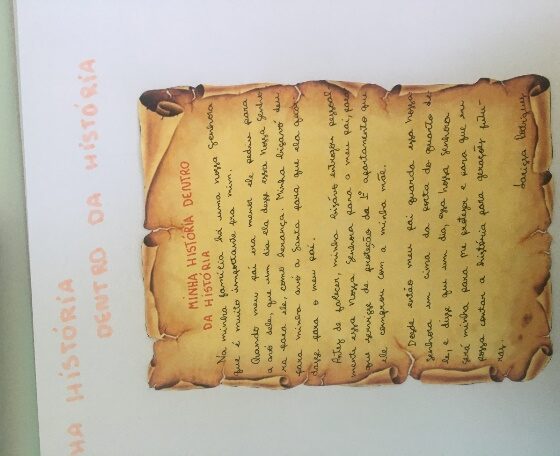 HA HISTÓRIA
DENTRO DA HISTÓRIA
MINHA HISTÓRIA DENTRO
DA HISTÓRIA
Na minha família há uma nossa Senhora
que é muito importante pra mim.
Quando meu pai era menor ele pediu para
a avó dele, que um dia ela desse essa Nossa Senho
ra para ele, como herança. Minha bisavó deu
para minha avó a Santa para que ela guar
dasse para o meu pai.
Antes de falecer, minha bisavó entregou pessoal
mente essa Nossa Senhora para o meu pai, para
que servisse de proteção do 1º apartamento que
ele comprou com a minha mãe.
Desde então meu pai guarda essa nossa
Senhora em cima da porta do quarto de
le, e disse que um dia, essa nossa Senhora
será minha para me proteger e para que eu
possa contar a história para gerações futu-
ras.
Larissa Rodrigues